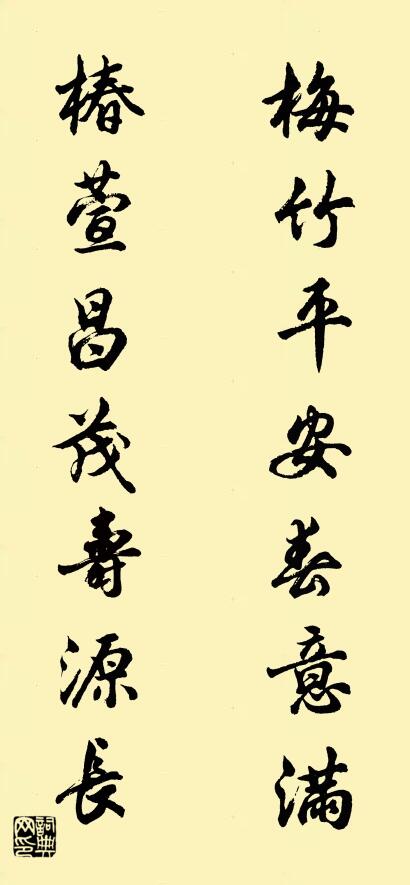 梅竹平安春意滿
椿萱昌茂壽源長
詞典网印